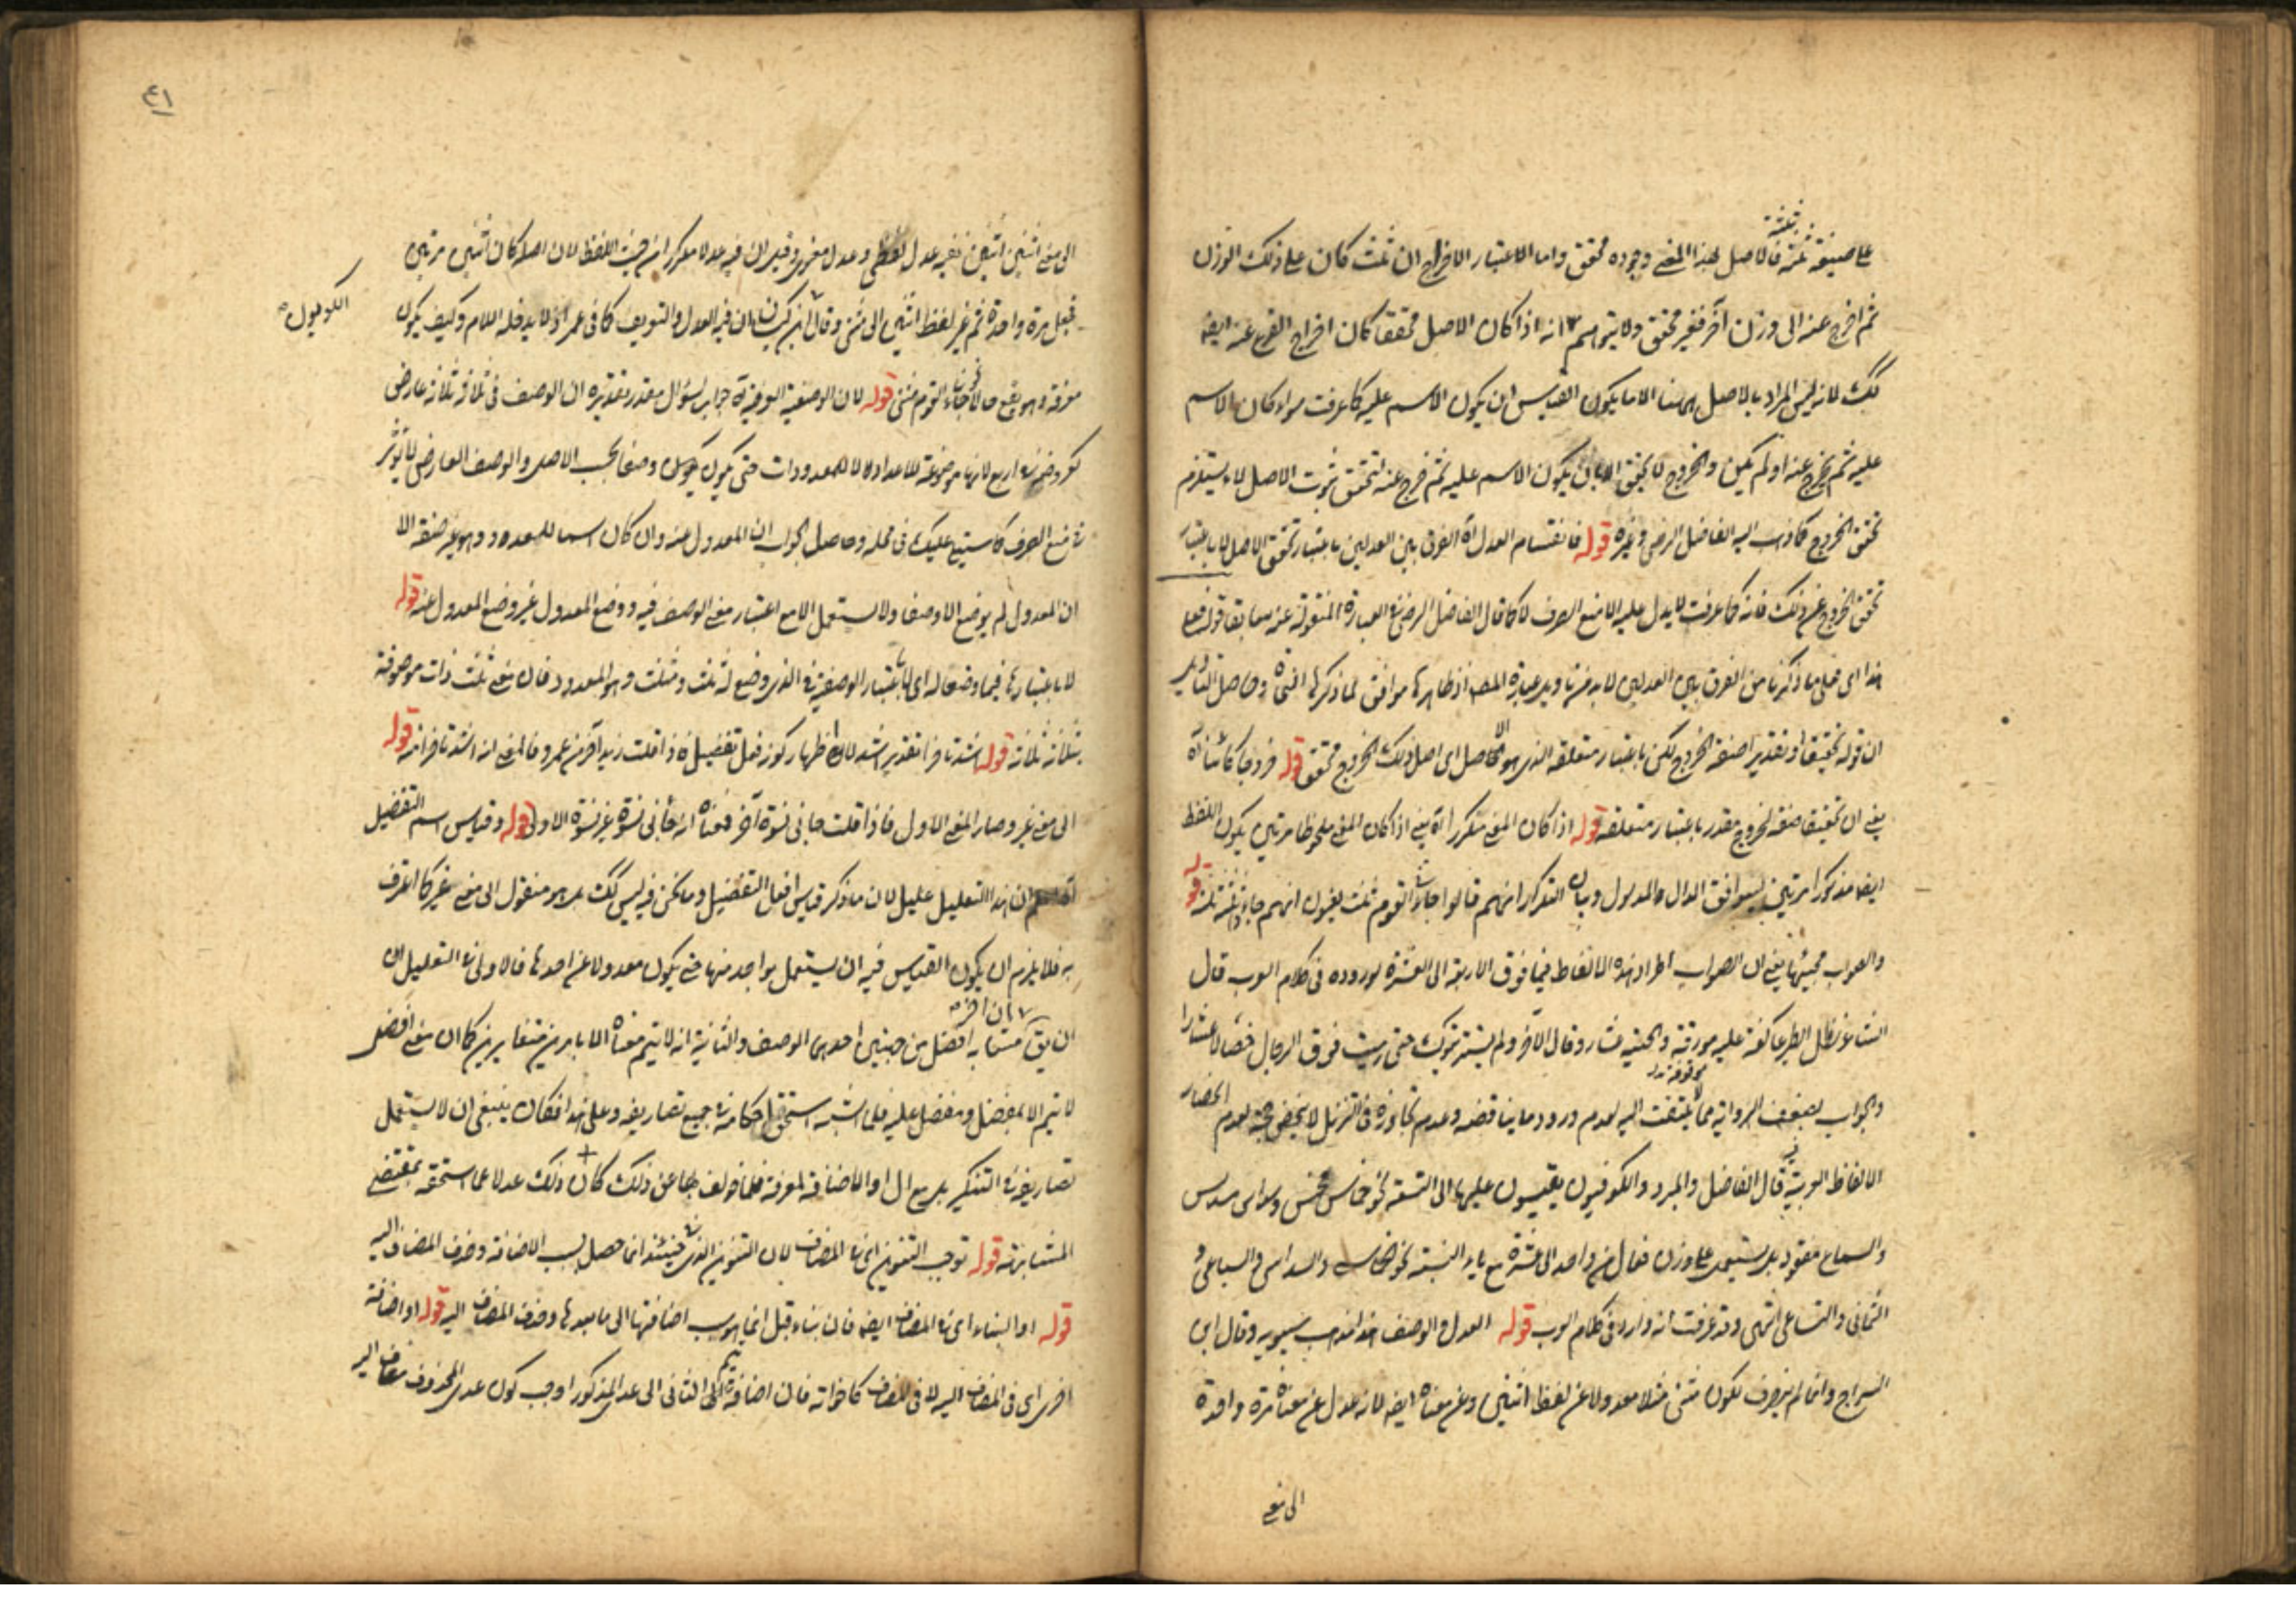 على صيغة ثلثة ثلثة فالاصل لهذا المعنى وجوده محقق واما الاعتبار الاخراج ان ثلث كان على ذلك الوزن
ثم اخرج عنه الى وزن آخر فغير محقق ولا يتوهم انه اذا كان الاصل محققا كان اخراج الفرع عنه ايضا
كك لانه ليس المراد بالاصل ههنا الا ما يكون القياس ان يكون الاسم عليه كما عرفت سواء كان الاسم
عليه ثم يخرج عنه او لم يكن والخروج لا يتحقق الا بان يكون الاسم عليه ثم خرج عنه فتحقق ثبوت الاصل لا يستلزم
تحقق الخروج كما ذهب اليه الفاضل الرضى وغيره قوله فانقسام العدل آه الفرق بين العدلين باعتبار تحقق الاصل لا باعتبار
تحقق الخروج عن ذلك فانه كما عرفت لا يدل عليه الا منع الصرف لا كما قال الفاضل الرضى فى العبارة المنقولة عنه سابقا قوله فعلى
هذا اى فعلى ما ذكرنا من الفرق بين العدلين لا بد من تاويل عبارة المصـ اذ ظاهرها موافق لما ذكره النحاة وحاصل التاويل
ان قوله تحقيقا او تقديرا صفة الخروج لكن باعتبار متعلقه الذى هو الاصل اى اصل ذلك الخروج محقق قوله خروجا كائنا آه
يعنى ان تحقيقا صفة لخروج مقدر باعتبار متعلقه قوله اذا كان المعنى متكررا آه يعنى اذا كان المعنى ملحوظا مرتين يكون اللفظ
ايضا مذكورا مرتين ليتوافق الدال والمدلول وبيان التكرار انهم قالوا جاءنى القوم ثلث يعنون انهم جاؤا ثلثة ثلثة قوله
والصواب مجيئها يعنى ان الصواب اطراد هذه الالفاظ فيما فوق الاربعة الى العشرة لوروده فى كلام العرب قال
الشاعر تظل الطير عاكفة عليه وقال الآخر ولم يستريثوك حتى رميت فوق الرجال خصالا عشارا
والجواب بضعف الرواية مما لا يلتفت اليه لعدم ورود ما يناقضه وعدم تجاوزه فى التنزيل لا ينهض حجة لعدم انحصار
الالفاظ العربية فيه قال الفاضل والمبرد والكوفيون يقيسون عليها الى التسعة نحو خماس ومخمس وسداس ومسدس
والسماع مفقود بل يستعمل على وزن فعال من واحد الى عشرة مع ياء النسبة نحو الخماسى والسداسى والسباعى و
الثمانى والتساعى انتهى وقد عرفت انه وارد فى كلام العرب قوله العدل والوصف هذا مذهب سيبويه وقال ابن
السراج وانما لم ينصرف لكون مثنى مثلا معدولا عن لفظ اثنين وعن معناه ايضا لانه عدل عن معناه مرة واحدة
الى معنى
٤١
الى معنى اثنين اثنين ففيه عدل لفظى وعدل معنوى وقيل ان فيه عدلا مكررا من حيث اللفظ لان اصله كان اثنين مرتين
فجعل مرة واحدة ثم غير لفظ اثنين الى مثنى وقال ابن كيسان ان فيه العدل والتعريف كما فى عمر اذ لا يدخله اللام وكيف يكون
الكوفيون
معرفة وهو يقع حالا نحو جاءنا القوم مثنى قوله لان الوصفية العرضية آه جواب لسؤال مقدر تقديره ان الوصف فى ثلاثة ثلاثة عارض
كعروضه فى اربع لانها موضوعة للاعداد لا للمعدودات حتى يكون وصفا بحسب الاصل والوصف العارضى لا يؤثر
فى منع الصرف كما سيتلى عليك فى محله وحاصل الجواب ان المعدول عنه وان كان اسما للعدد وهو غير صفة الا
ان المعدول لم يوضع الا وصفا ولا يستعمل الا مع اعتبار معنى الوصف فيه ووضع المعدول غير وضع المعدول عنه قوله
لا باعتبارها فيما وضعا له اى لا باعتبار الوصفية فى الذى وضع له ثلث ومثلث وهو المعدود فان معنى ثلث ذات موصوفة
بثلاثة ثلاثة قوله اشد تاخرا تقدير اشد لاظهار كونه افعل تفضيل فاذا قلت زيد آخر من عمرو فالمعنى انه اشد تاخرا منه قوله
الى معنى غير وصار المعنى الاول فاذا قلت جاءنى نسوة أخر فمعناه انه جاءنى نسوة غير نسوة الاول قوله وقياس اسم التفضيل
ان هذا التعليل عليل لان ما ذكر قياس افعل التفضيل وما نحن فيه ليس كك بل هو منقول الى معنى غير كما اعترف
به فلا يلزم ان يكون القياس فيه ان يستعمل بواحد منها حتى يكون معدولا عن احدها فالاولى فى التعليل ان
ان يق ان اخر مشابه افضل من جهتين احديهما الوصف والثانية انه لا يتم معناه الا بامرين متغايرين كما ان معنى افضل
لا يتم الا بمفضل ومفضل عليه فلما اشبهه استحق احكامه فى جميع تصاريفه وعلى هذا فكان ينبغى ان لا يستعمل
تصاريفه فى التنكير بل مع ال او الاضافة لمعرفة فلما خولف بها عن ذلك كان ذلك عدلا عما استحقه بمقتضى
المشابهة قوله توجب التنوين اى فى المضاف لان التنوين الذى فيه حينئذ انما حصل بسبب الاضافة وحذف المضاف اليه
قوله او البناء اى فى المضاف ايضا فان بناء قبل انما هو بسبب اضافتها الى ما بعدها وحذف المضاف اليه قوله او اضافة
اخرى اى فى المضاف اليه لا فى المضاف كما خواته فان اضافة تيم الثانى الى عدى المذكور اوجب كون عدى المحذوف مضاف اليه